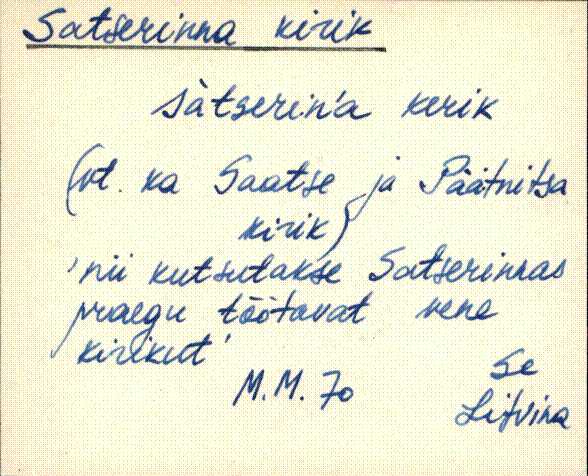 Satserinna kirik
sàtserin'a kerik
(vt. ka Saatse ja Päätnitsa
kirik)
'nii kutsutakse Satserinnas
praegu töötavat vene
kirikut'
Se
M.M. 70
Litvina